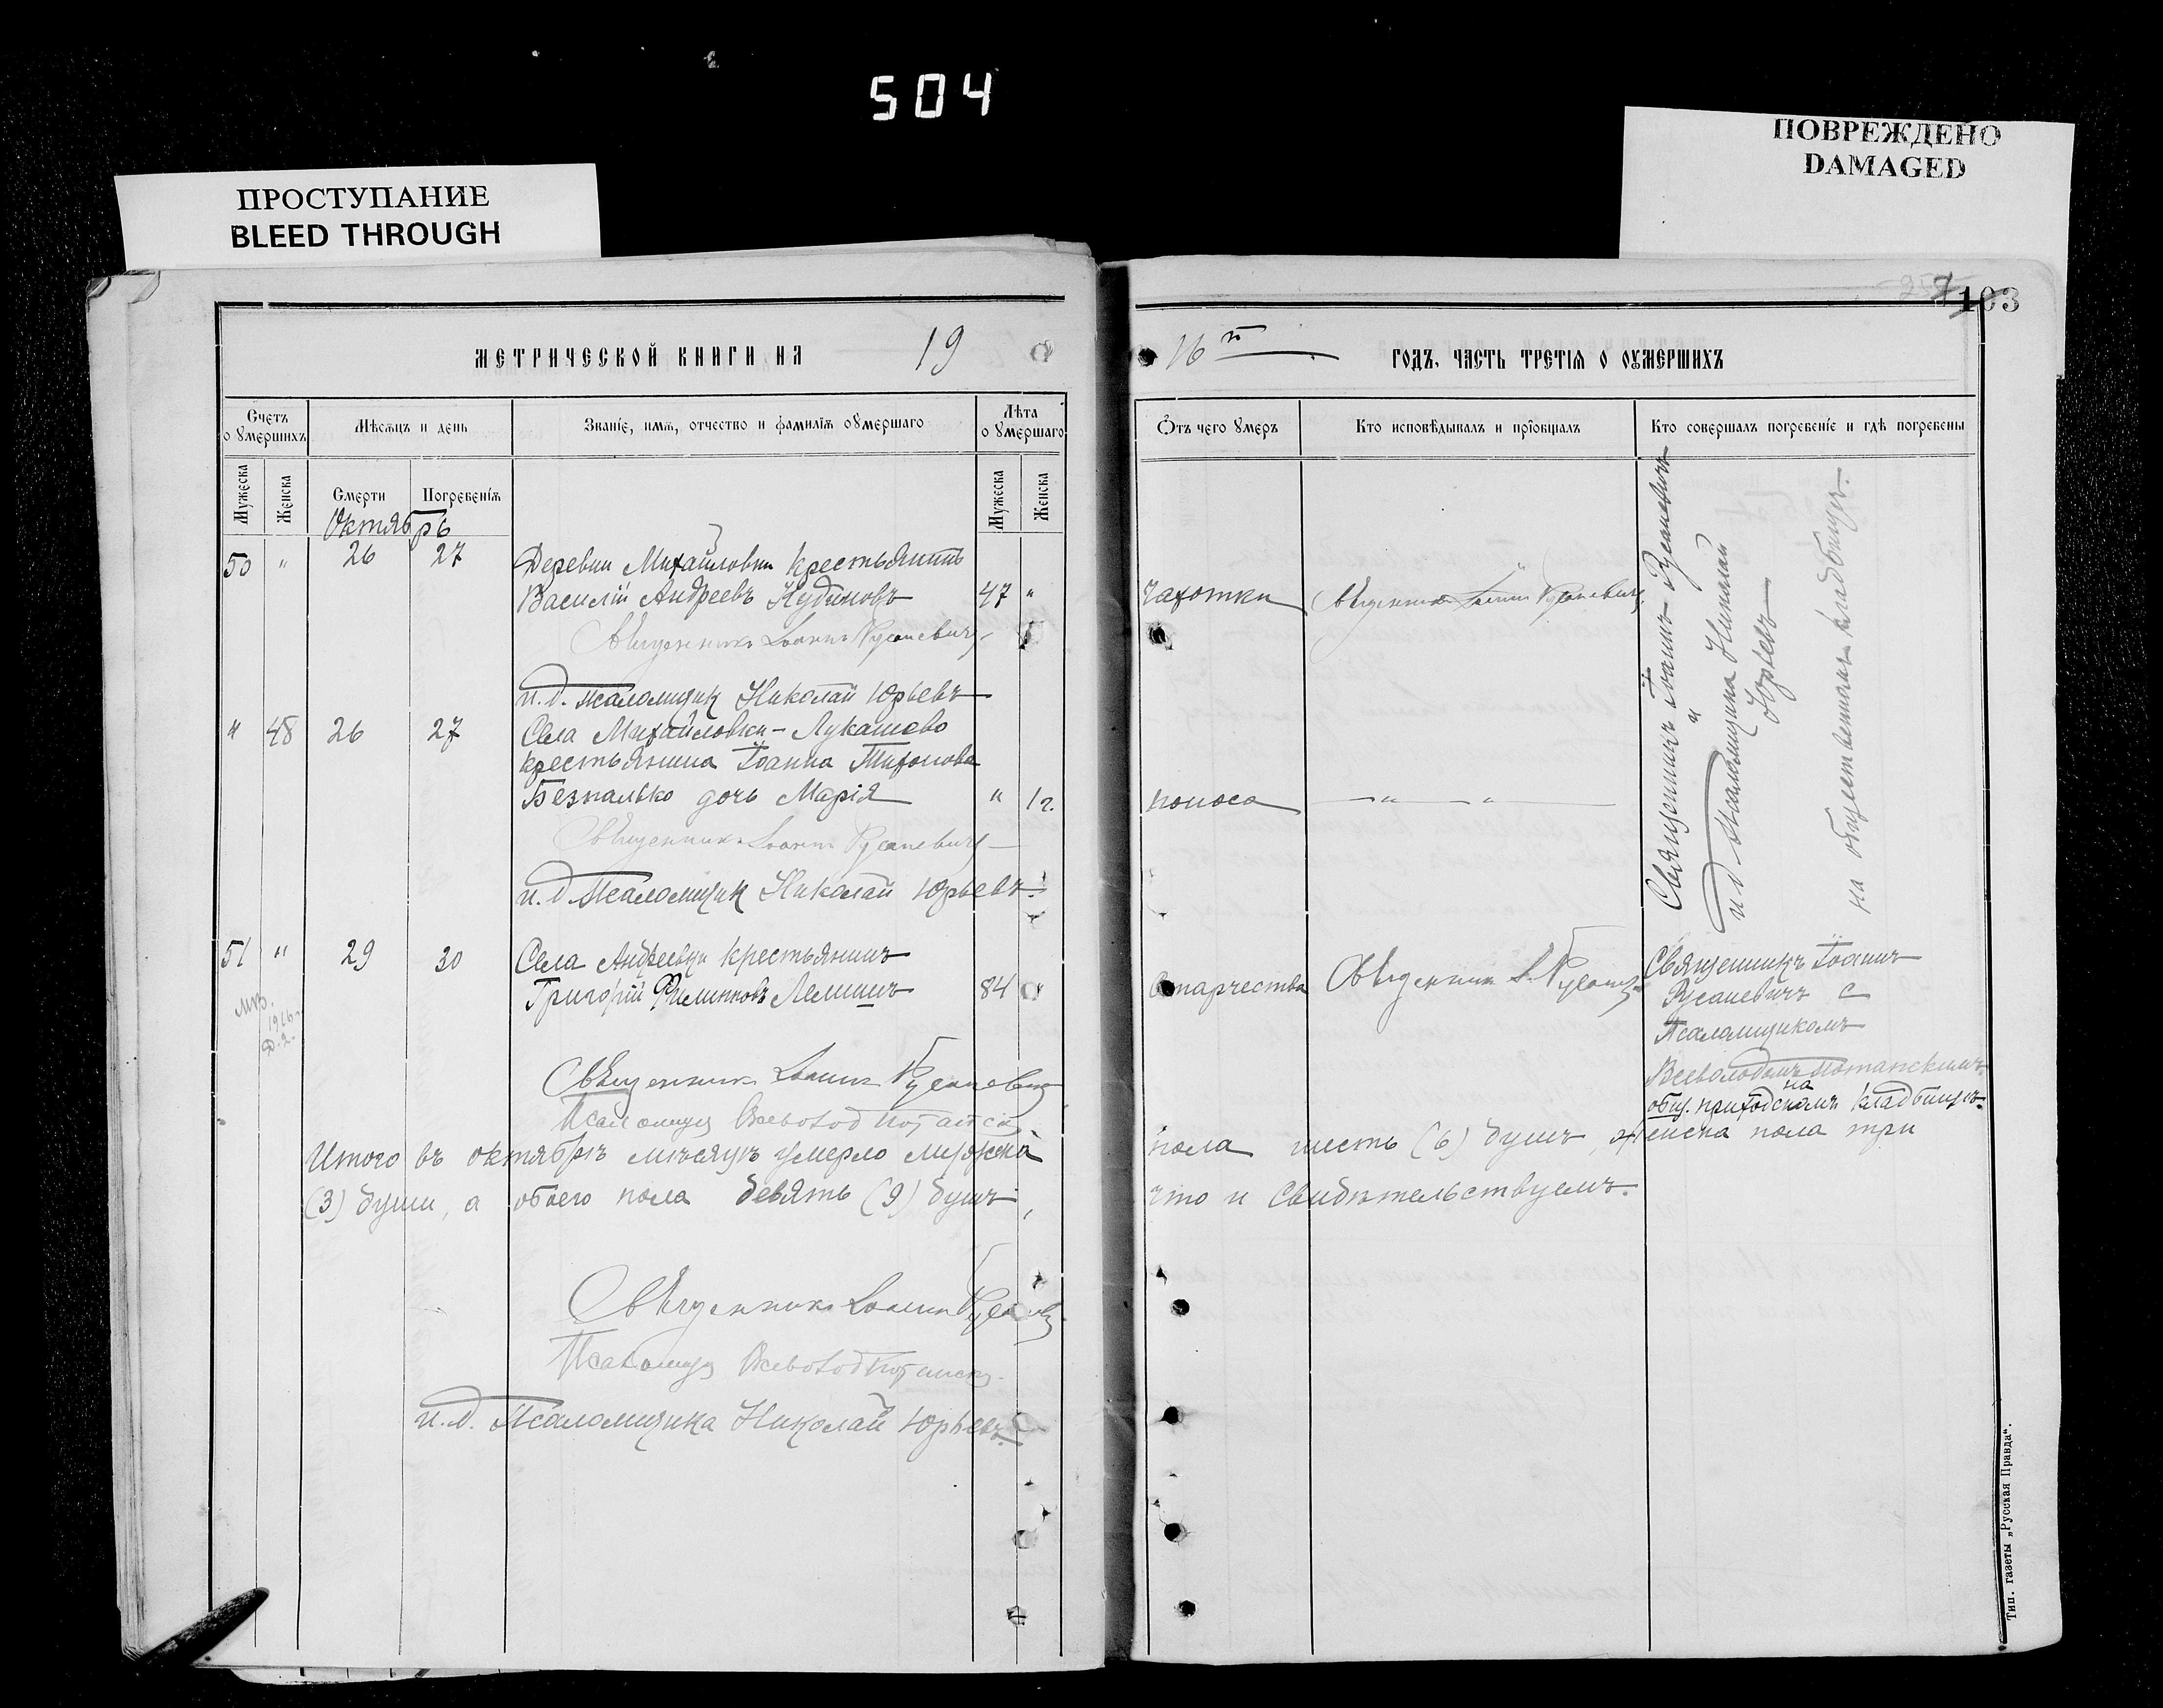 504
ПРОСТУПАНИЕ
BLEED THROUGH
ПОВРЕЖДЕНО
DAMAGED
103
МЕТРИЧЕСКОЙ КНИГИ НА 19
16 г. ГОДЪ, ЧАСТЬ ТРЕТІЯ О ОУМЕРШИХЪ
Счетъ о умершихъ
Мѣсяцъ и день
Званіе, имя, отчество и фамилія оумершаго
Лѣта о умершаго
Отъ чего умеръ
Кто исповѣдывалъ и пріобщалъ
Кто совершалъ погребеніе и гдѣ погребены
Мужеска
Женска
Смерти
Погребенія
Мужеска
Женска
Октябрь
50 " 26 27 Деревни Михайловки крестьянинъ
Василій Андреевъ Кудиновъ 47 " чахотки Священникъ Іоаннъ Русаневичъ
Священникъ Іоаннъ Русаневичъ
и.д. псаломщик Николай Юрьевъ
" 48 26 27 Села Михайловки-Лукашево
крестьянина Іоанна Тихонова
Безпалько дочь Марія " 1 г. поноса — " — "
Священникъ Іоаннъ Русаневичъ
и.д. Псаломщик Николай Юрьевъ
Священникъ Іоаннъ Русаневичъ
и
и.д. Псаломщика Николай
Юрьевъ
на общественномъ кладбищѣ.
51 " 29 30 Села Андреевки крестьянинъ
Григорій Филиповъ Лемишъ 84 старчества Священникъ І. Русаневичъ
1916 г.
Священникъ Іоаннъ
Русаневичъ с
Псаломщикомъ
Всеволодомъ
на
общ. приходскомъ кладбищѣ.
Священникъ Іоаннъ Русаневичъ
Псаломщ Всеволод
Итого въ октябрѣ мѣсяцѣ умерло мужска пола шесть (6) душъ, женска пола три
(3) души, а обоего пола девять (9) душъ, что и свидѣтельствуемъ.
Священникъ Іоаннъ Русаневичъ
Псаломщ Всеволод
и.д. Псаломщика Николай Юрьевъ.
Тип. газеты „Русская Правда“.